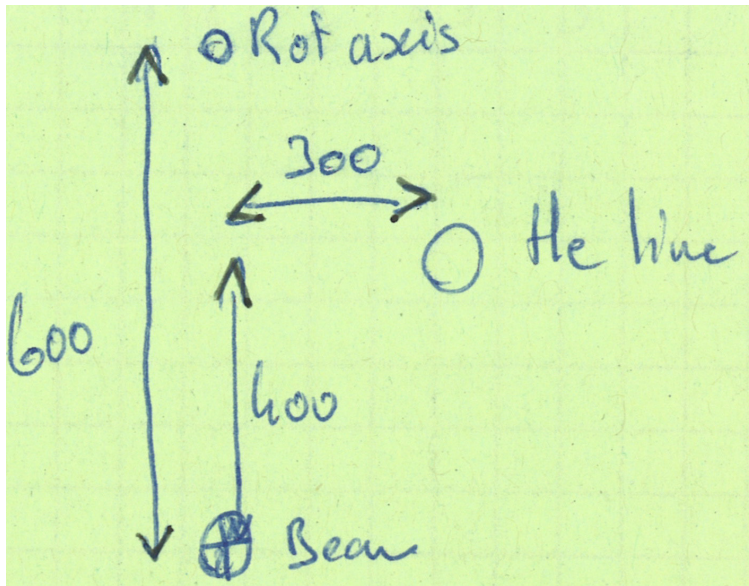 Rot axis
300
He line
600
400
Beam